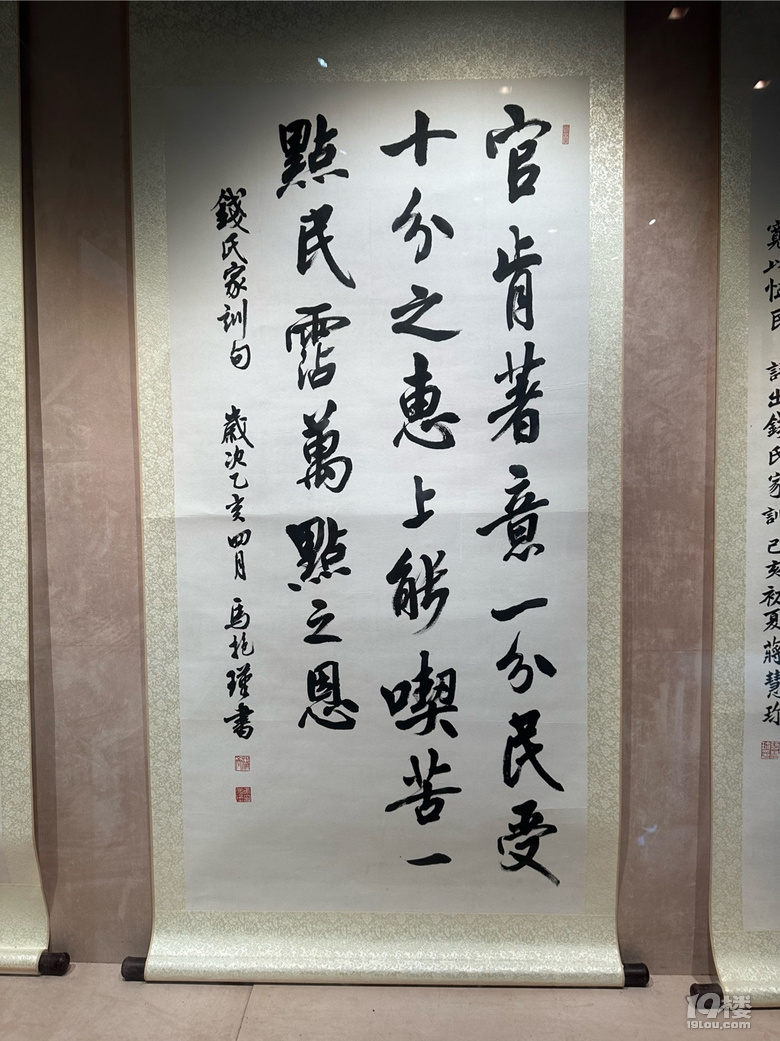 官肯著意一分民受
十分之惠上能喫苦一
點民霑萬點之恩
錢氏家訓句 歲次乙亥四月 馬抱瑾書
寬以恤民 語出錢氏家訓 己亥初夏蔣慧珍
19楼
19lou.com